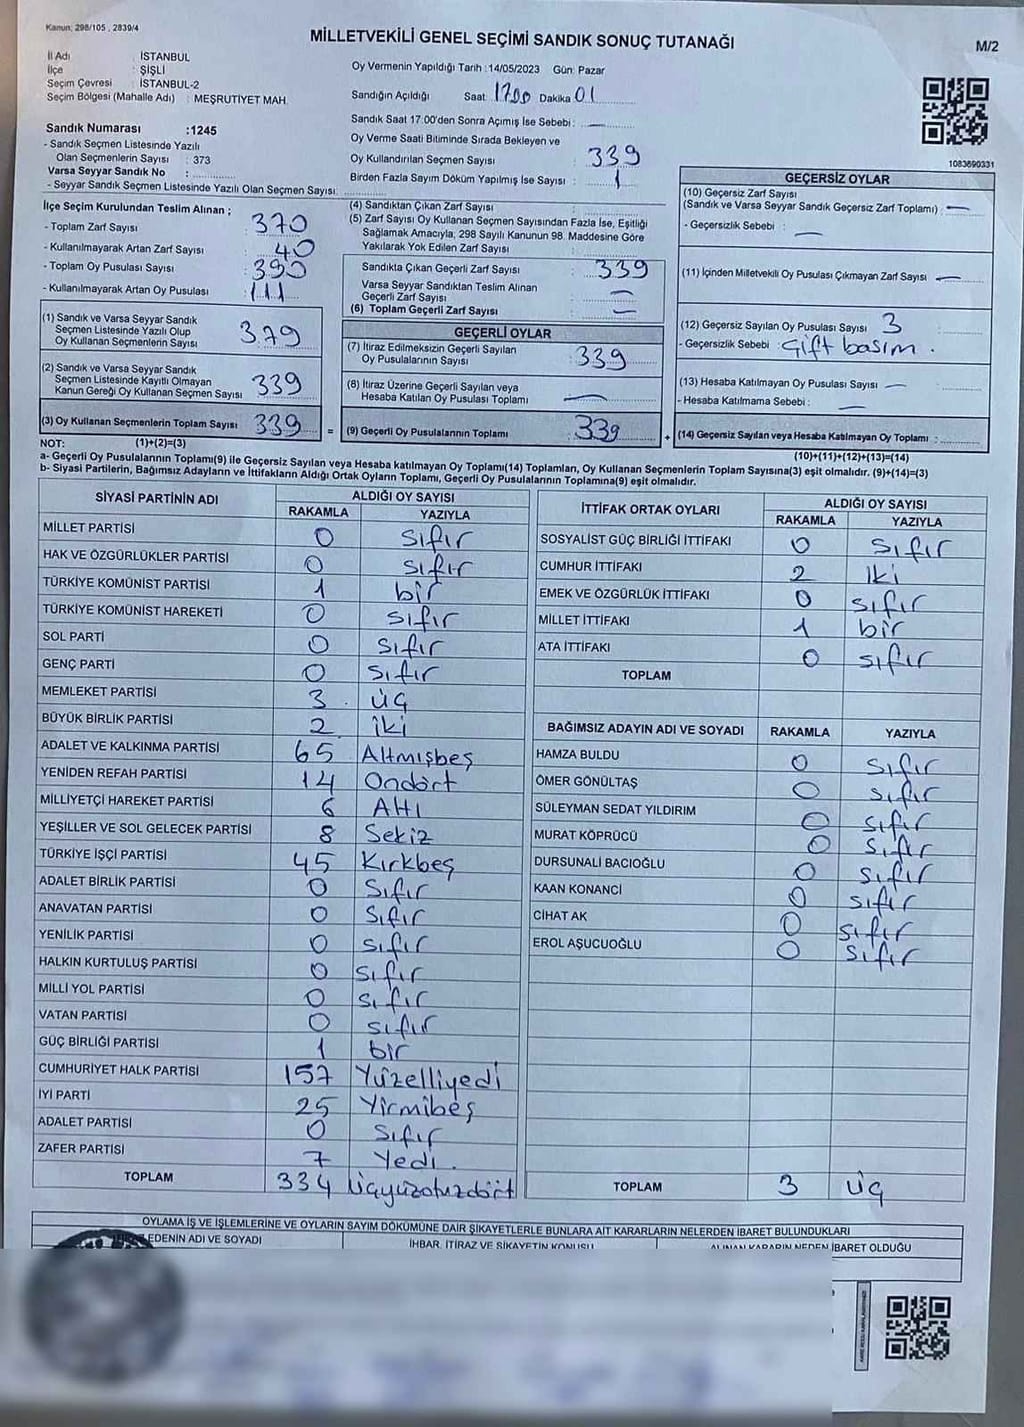 Kanun; 298/105 , 2839/4
MİLLETVEKİLİ GENEL SEÇİMİ SANDIK SONUÇ TUTANAĞI
M/2
İl Adı : İSTANBUL
İlçe : ŞİŞLİ
Seçim Çevresi : İSTANBUL-2
Seçim Bölgesi (Mahalle Adı) : MEŞRUTİYET MAH.
Oy Vermenin Yapıldığı Tarih : 14/05/2023 Gün: Pazar
Sandığın Açıldığı Saat 1700 Dakika 01
Sandık Saat 17:00'den Sonra Açımış İse Sebebi : —
Oy Verme Saati Bitiminde Sırada Bekleyen ve
Oy Kullandırılan Seçmen Sayısı : 339
Birden Fazla Sayım Döküm Yapılmış İse Sayısı : 1
1083690331
Sandık Numarası :1245
- Sandık Seçmen Listesinde Yazılı
Olan Seçmenlerin Sayısı : 373
Varsa Seyyar Sandık No :
- Seyyar Sandık Seçmen Listesinde Yazılı Olan Seçmen Sayısı:
İlçe Seçim Kurulundan Teslim Alınan ;
- Toplam Zarf Sayısı : 370
- Kullanılmayarak Artan Zarf Sayısı : 40
- Toplam Oy Pusulası Sayısı : 390
- Kullanılmayarak Artan Oy Pusulası : 111
(1) Sandık ve Varsa Seyyar Sandık
Seçmen Listesinde Yazılı Olup
Oy Kullanan Seçmenlerin Sayısı : 379
(2) Sandık ve Varsa Seyyar Sandık
Seçmen Listesinde Kayıtlı Olmayan
Kanun Gereği Oy Kullanan Seçmen Sayısı : 339
(3) Oy Kullanan Seçmenlerin Toplam Sayısı : 339 =
(4) Sandıktan Çıkan Zarf Sayısı :
(5) Zarf Sayısı Oy Kullanan Seçmen Sayısından Fazla İse, Eşitliği
Sağlamak Amacıyla, 298 Sayılı Kanunun 98. Maddesine Göre
Yakılarak Yok Edilen Zarf Sayısı :
Sandıkta Çıkan Geçerli Zarf Sayısı : 339
Varsa Seyyar Sandıktan Teslim Alınan
Geçerli Zarf Sayısı : —
(6) Toplam Geçerli Zarf Sayısı : —
GEÇERLİ OYLAR
(7) İtiraz Edilmeksizin Geçerli Sayılan
Oy Pusulalarının Sayısı : 339
(8) İtiraz Üzerine Geçerli Sayılan veya
Hesaba Katılan Oy Pusulası Toplamı : —
(9) Geçerli Oy Pusulalarının Toplamı : 339 +
GEÇERSİZ OYLAR
(10) Geçersiz Zarf Sayısı
(Sandık ve Varsa Seyyar Sandık Geçersiz Zarf Toplamı) : —
- Geçersizlik Sebebi : —
(11) İçinden Milletvekili Oy Pusulası Çıkmayan Zarf Sayısı : —
(12) Geçersiz Sayılan Oy Pusulası Sayısı : 3
- Geçersizlik Sebebi : Çift basım .
(13) Hesaba Katılmayan Oy Pusulası Sayısı : —
- Hesaba Katılmama Sebebi : —
(14) Geçersiz Sayılan veya Hesaba Katılmayan Oy Toplamı :
NOT: (1)+(2)=(3)
(10)+(11)+(12)+(13)=(14)
a- Geçerli Oy Pusulalarının Toplamı(9) ile Geçersiz Sayılan veya Hesaba katılmayan Oy Toplamı(14) Toplamları, Oy Kullanan Seçmenlerin Toplam Sayısına(3) eşit olmalıdır. (9)+(14)=(3)
b- Siyasi Partilerin, Bağımsız Adayların ve İttifakların Aldığı Ortak Oyların Toplamı, Geçerli Oy Pusulalarının Toplamına(9) eşit olmalıdır.
SİYASİ PARTİNİN ADI ALDIĞI OY SAYISI
RAKAMLA YAZIYLA
MİLLET PARTİSİ 0 sıfır
HAK VE ÖZGÜRLÜKLER PARTİSİ 0 sıfır
TÜRKİYE KOMÜNİST PARTİSİ 1 bir
TÜRKİYE KOMÜNİST HAREKETİ 0 sıfır
SOL PARTİ 0 sıfır
GENÇ PARTİ 0 sıfır
MEMLEKET PARTİSİ 3 üç
BÜYÜK BİRLİK PARTİSİ 2 iki
ADALET VE KALKINMA PARTİSİ 65 Altmışbeş
YENİDEN REFAH PARTİSİ 14 Ondört
MİLLİYETÇİ HAREKET PARTİSİ 6 Altı
YEŞİLLER VE SOL GELECEK PARTİSİ 8 Sekiz
TÜRKİYE İŞÇİ PARTİSİ 45 Kırkbeş
ADALET BİRLİK PARTİSİ 0 Sıfır
ANAVATAN PARTİSİ 0 Sıfır
YENİLİK PARTİSİ 0 sıfır
HALKIN KURTULUŞ PARTİSİ 0 sıfır
MİLLİ YOL PARTİSİ 0 sıfır
VATAN PARTİSİ 0 sıfır
GÜÇ BİRLİĞİ PARTİSİ 1 bir
CUMHURİYET HALK PARTİSİ 157 Yüzelliyedi
İYİ PARTİ 25 Yirmibeş
ADALET PARTİSİ 0 Sıfır
ZAFER PARTİSİ 7 Yedi.
TOPLAM 334 üçyüzotuzdört
İTTİFAK ORTAK OYLARI ALDIĞI OY SAYISI
RAKAMLA YAZIYLA
SOSYALİST GÜÇ BİRLİĞİ İTTİFAKI 0 sıfır
CUMHUR İTTİFAKI 2 İki
EMEK VE ÖZGÜRLÜK İTTİFAKI 0 sıfır
MİLLET İTTİFAKI 1 bir
ATA İTTİFAKI 0 sıfır
TOPLAM
BAĞIMSIZ ADAYIN ADI VE SOYADI RAKAMLA YAZIYLA
HAMZA BULDU 0 sıfır
ÖMER GÖNÜLTAŞ 0 sıfır
SÜLEYMAN SEDAT YILDIRIM 0 sıfır
MURAT KÖPRÜCÜ 0 sıfır
DURSUNALİ BACIOĞLU 0 sıfır
KAAN KONANCİ 0 sıfır
CİHAT AK 0 sıfır
EROL AŞUCUOĞLU 0 sıfır
TOPLAM 3 üç
OYLAMA İŞ VE İŞLEMLERİNE VE OYLARIN SAYIM DÖKÜMÜNE DAİR ŞİKAYETLERLE BUNLARA AİT KARARLARIN NELERDEN İBARET BULUNDUKLARI
EDENİN ADI VE SOYADI İHBAR, İTİRAZ VE ŞİKAYETİN KONUSU ALINAN KARARIN NEDEN İBARET OLDUĞU